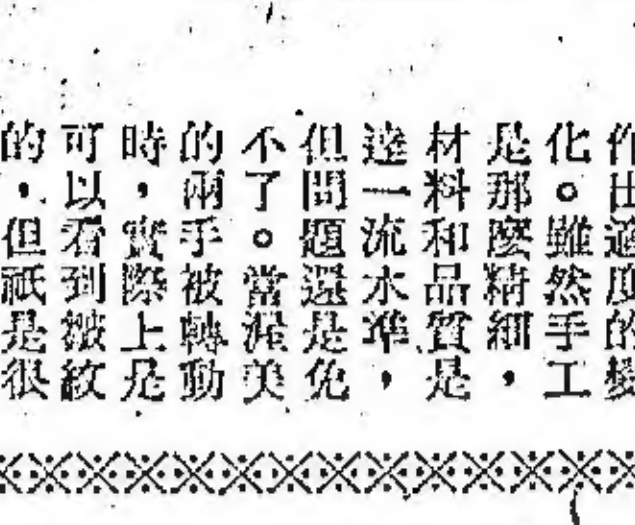 作出適度的變
化。雖然手工
是那麼精細，
材料和品質是
達一流水準，
但問題還是免
不了。當渥美
的兩手被轉動
時，實際上是
可以看到皺紋
的，但祇是很